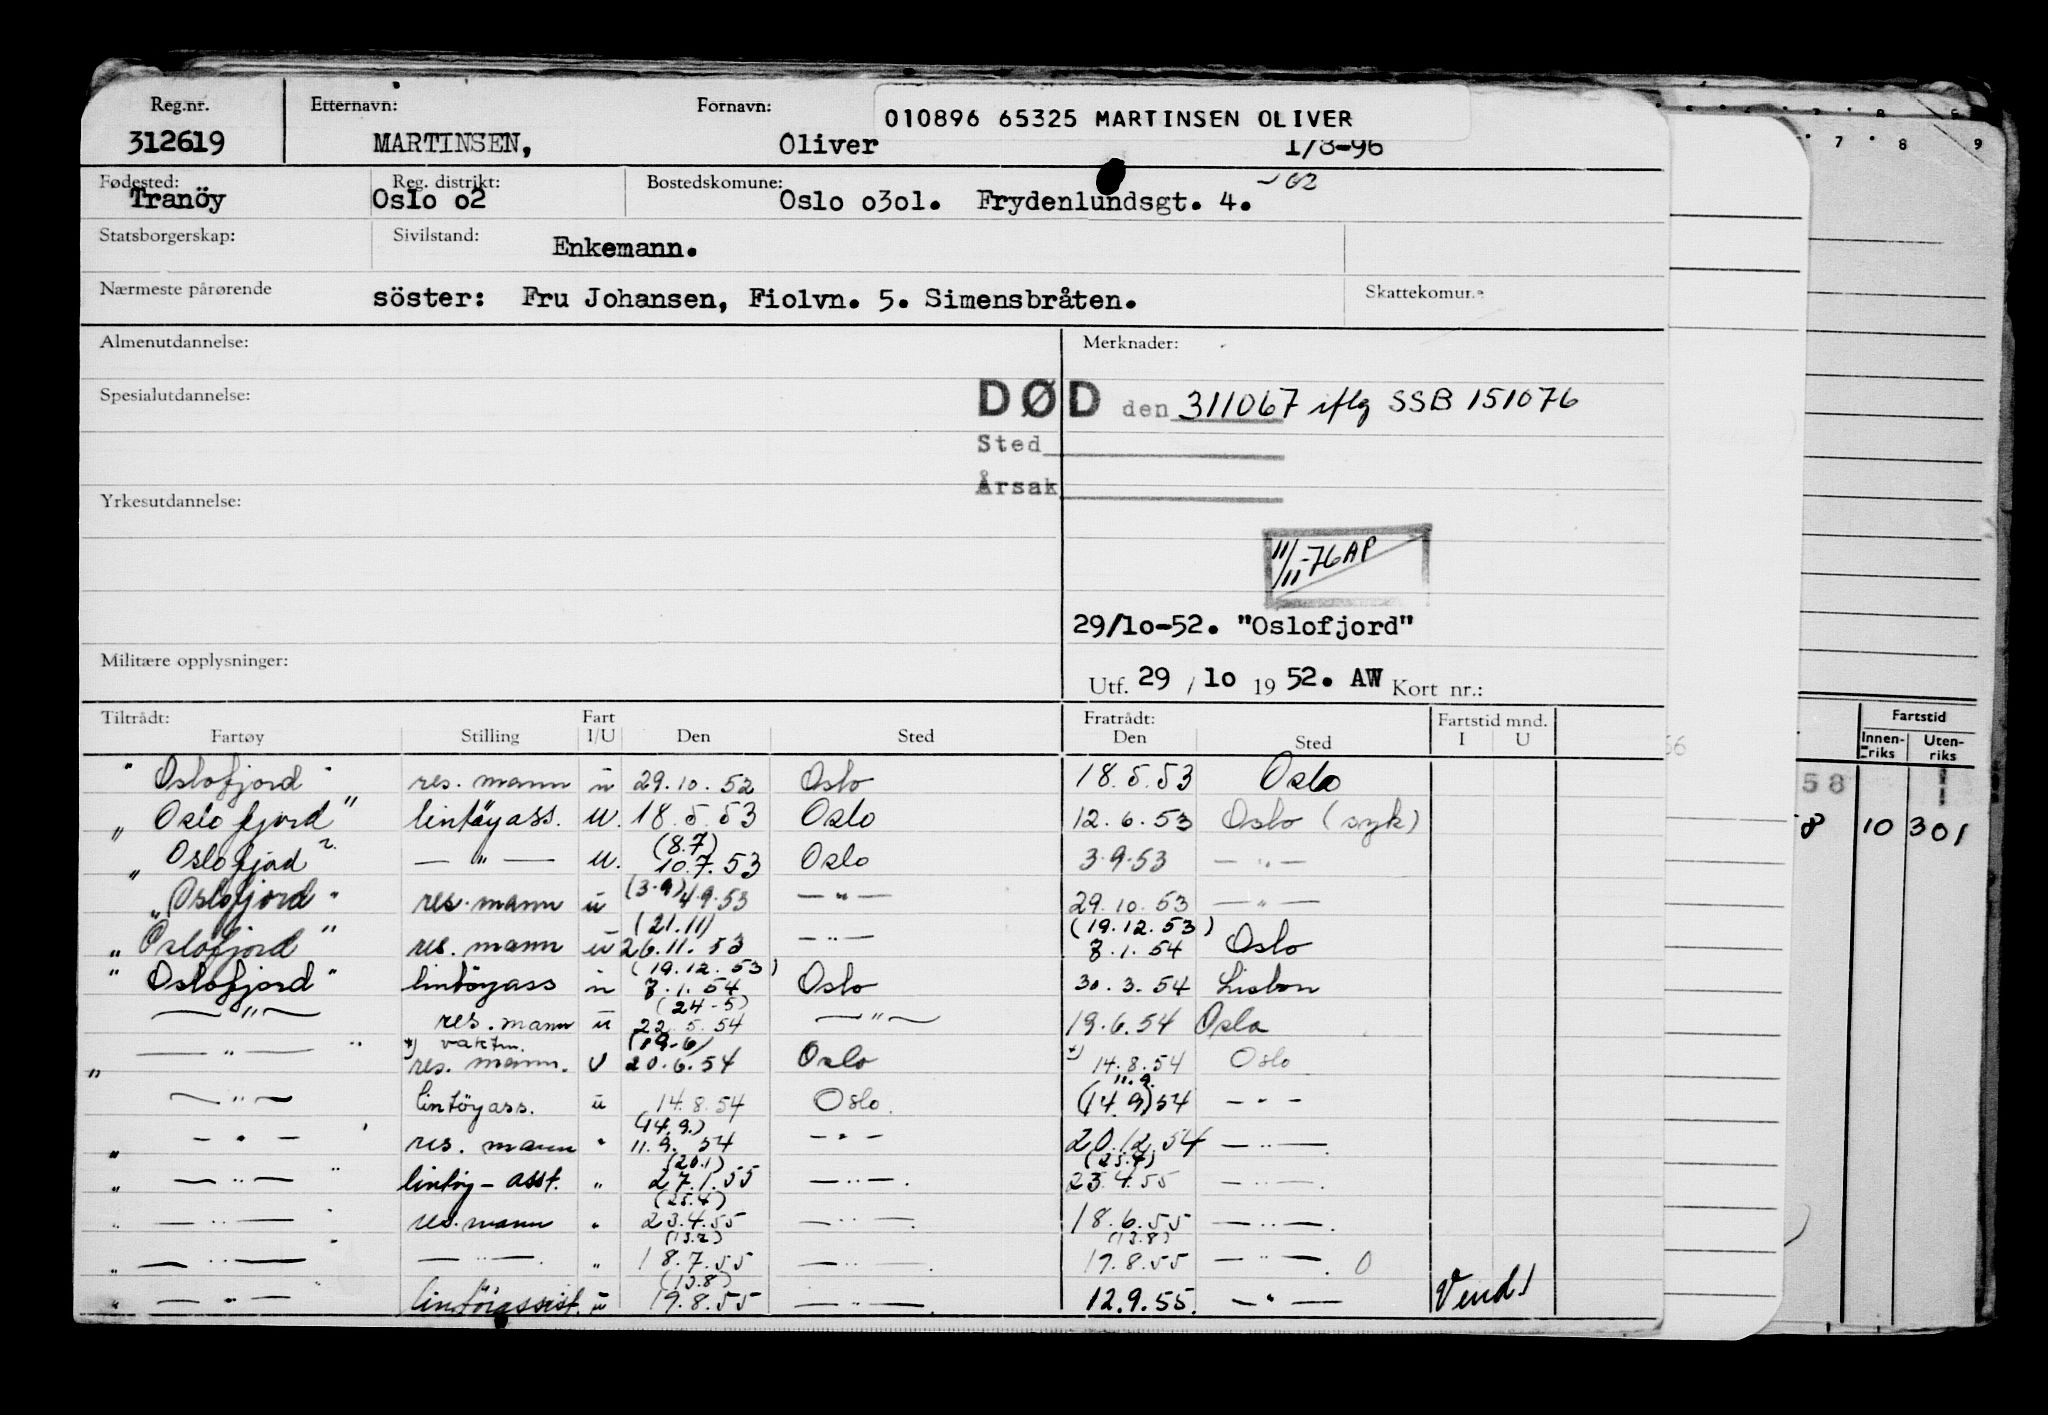 Reg.nr. Etternavn: Fornavn: 010896 65325 MARTINSEN OLIVER
312619 MARTINSEN, Oliver 1/8-96
Fødested: Reg. distrikt: Bostedskomune:
Tranöy Oslo o2 Oslo o3o1. Frydenlundsgt. 4.
Statsborgerskap: Sivilstand: Enkemann.
Nærmeste pårørende söster: Fru Johansen, Fiolvn. 5. Simensbråten. Skattekomune
Almenutdannelse: Merknader:
Spesialutdannelse: DØD den 311067 iflg SSB 151076
Sted
Årsak
Yrkesutdannelse:
11/11-76 AP
29/1o-52. "Oslofjord"
Militære opplysninger: Utf. 29 / 1o 19 52. AW Kort nr.:
Tiltrådt: Fart Fratrådt: Fartstid mnd. Fartstid
Fartøy Stilling I/U Den Sted Den Sted I U Innen-riks Uten-riks
" Oslofjord " res. mann u 29.10.52 Oslo 18.5.53 Oslo 58
" Oslofjord " lintöyass. u. 18.5.53 Oslo 12.6.53 Oslo (syk) 8 10 301
(8.7)
" Oslofjord " — " — u. 10.7.53 Oslo 3.9.53 — " —
" Oslofjord " res. mann u (3.9) 4.9.53 — " — 29.10.53 — " —
(21.11) (19.12.53)
" Oslofjord " res. mann u 26.11.53 — " — 8.1.54 Oslo
(19.12.53)
" Oslofjord " lintöyass u 8.1.54 Oslo 30.3.54 Lisbon
(24-5)
— " — res. mann u 22.5.54 — " — 19.6.54 Oslo
*) vaktm. (19-6)
" — " — " res. mann. U 20.6.54 Oslo *) 14.8.54 Oslo
11.9.
— " — lintöyass. u 14.8.54 Oslo. (14.9) 54 — " —
(14.9.)
" — " — res. mann " 11.9.54 — " — 20.12.54 — " —
(20.1) (25.4)
" — " — " lintöy-asst. " 27.1.55 — " — 23.4.55 — " —
(25.4)
" — " — " res. mann " 23.4.55 — " — 18.6.55 — " —
(13.8)
" — " — " — " — " 18.7.55 — " — 19.8.55 — " — 0
(13.8)
" — " — lintöiassist. u 19.8.55 — " — 12.9.55. — " — Vend!